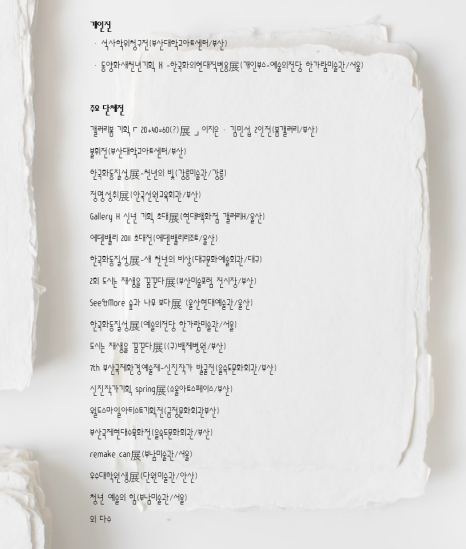 개인전
· 석사학위청구전(부산대학교아트센터/부산)
· 동양화새천년기획 H -한국화의현대적변용展(개인부스-예술의전당 한가람미술관/서울)
주요 단체전
갤러리봄 기획「 20+40=60(?)展 」 이지은 · 김민섭 2인전(봄갤러리/부산)
봄회전(부산대학교아트센터/부산)
한국화동질성展-천년의 빛(강릉미술관/강릉)
정명성취展(안국선원교육회관/부산)
Gallery H 신년 기획 초대展(현대백화점 갤러리H/울산)
에덴밸리 2011 초대전(에덴밸리리조트/울산)
한국화동질성展-새 천년의 비상(대구문화예술회관/대구)
2회 도시는 재생을 꿈꾼다展(부산미술포럼 전시장/부산)
See&More 숲과 나무 보다展 (울산현대예술관/울산)
한국화동질성展(예술의전당 한가람미술관/서울)
도시는 재생을 꿈꾼다展((구)백제병원/부산)
7th 부산국제환경예술제-신진작가 발굴전(을숙도문화회관/부산)
신진작가기획 spring展(소울아트스페이스/부산)
월드스마일아티스트기획전(금정문화회관부산)
부산국제현대수묵화전(을숙도문화회관/부산)
remake can展(부남미술관/서울)
우수대학원생展(단원미술관/안산)
청년 예술의 힘(부남미술관/서울)
외 다수